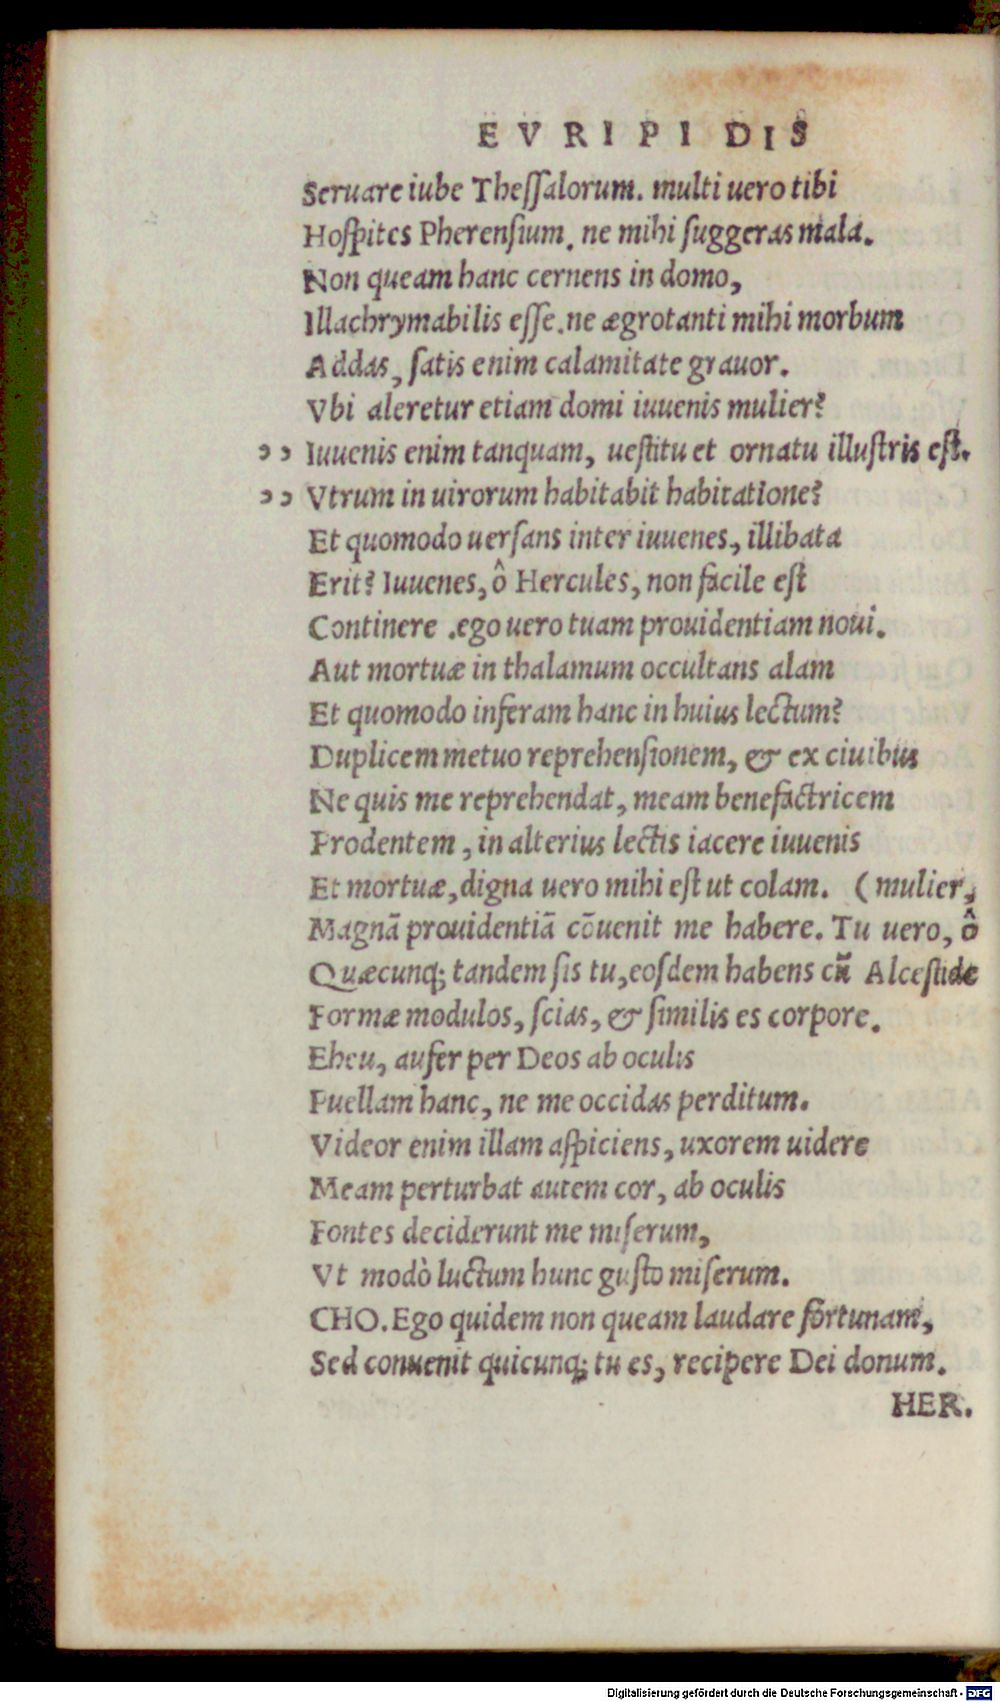 EVRIPIDIS
Seruare iube Theſſalorum. multi uero tibi
Hoſpites Pherenſium. ne mihi ſuggeras mala.
Non queam hanc cernens in domo,
Illachrymabilis eſſe. ne ægrotanti mihi morbum
Addas, ſatis enim calamitate grauor.
Vbi aleretur etiam domi iuuenis mulier?
ɔɔ Iuuenis enim tanquam, ueſtitu et ornatu illuſtris eſt.
ɔɔ Vtrum in uirorum habitabit habitatione?
Et quomodo uerſans inter iuuenes, illibata
Erit? Iuuenes, ô Hercules, non facile eſt
Continere .ego uero tuam prouidentiam noui.
Aut mortuæ in thalamum occultans alam
Et quomodo inferam hanc in huius lectum?
Duplicem metuo reprehenſionem, & ex ciuibus
Ne quis me reprehendat, meam benefactricem
Prodentem, in alterius lectis iacere iuuenis
Et mortuæ, digna uero mihi eſt ut colam. (mulier,
Magnã prouidentiã cõuenit me habere. Tu uero, ô
Quæcunq; tandem ſis tu, eoſdem habens cũ Alceſtide
Formæ modulos, ſcias, & ſimilis es corpore.
Eheu, aufer per Deos ab oculis
Puellam hanc, ne me occidas perditum.
Videor enim illam aſpiciens, uxorem uidere
Meam perturbat autem cor, ab oculis
Fontes deciderunt me miſerum,
Vt modò luctum hunc guſto miſerum.
CHO. Ego quidem non queam laudare fortunam,
Sed conuenit quicunq; tu es, recipere Dei donum.
HER.
Digitalisierung gefördert durch die Deutsche Forschungsgemeinschaft - DFG